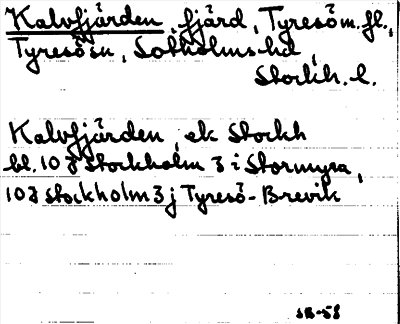 Kalvfjärden, fjärd, Tyresö m. fl.,
Tyresö sn, Sotholms hd,
Stockh. l.
Kalvfjärden, ek Stockh
bl. 10 J Stockholm 3 i Stormyra,
10 J Stockholm 3 j Tyresö-Brevik
SR-58